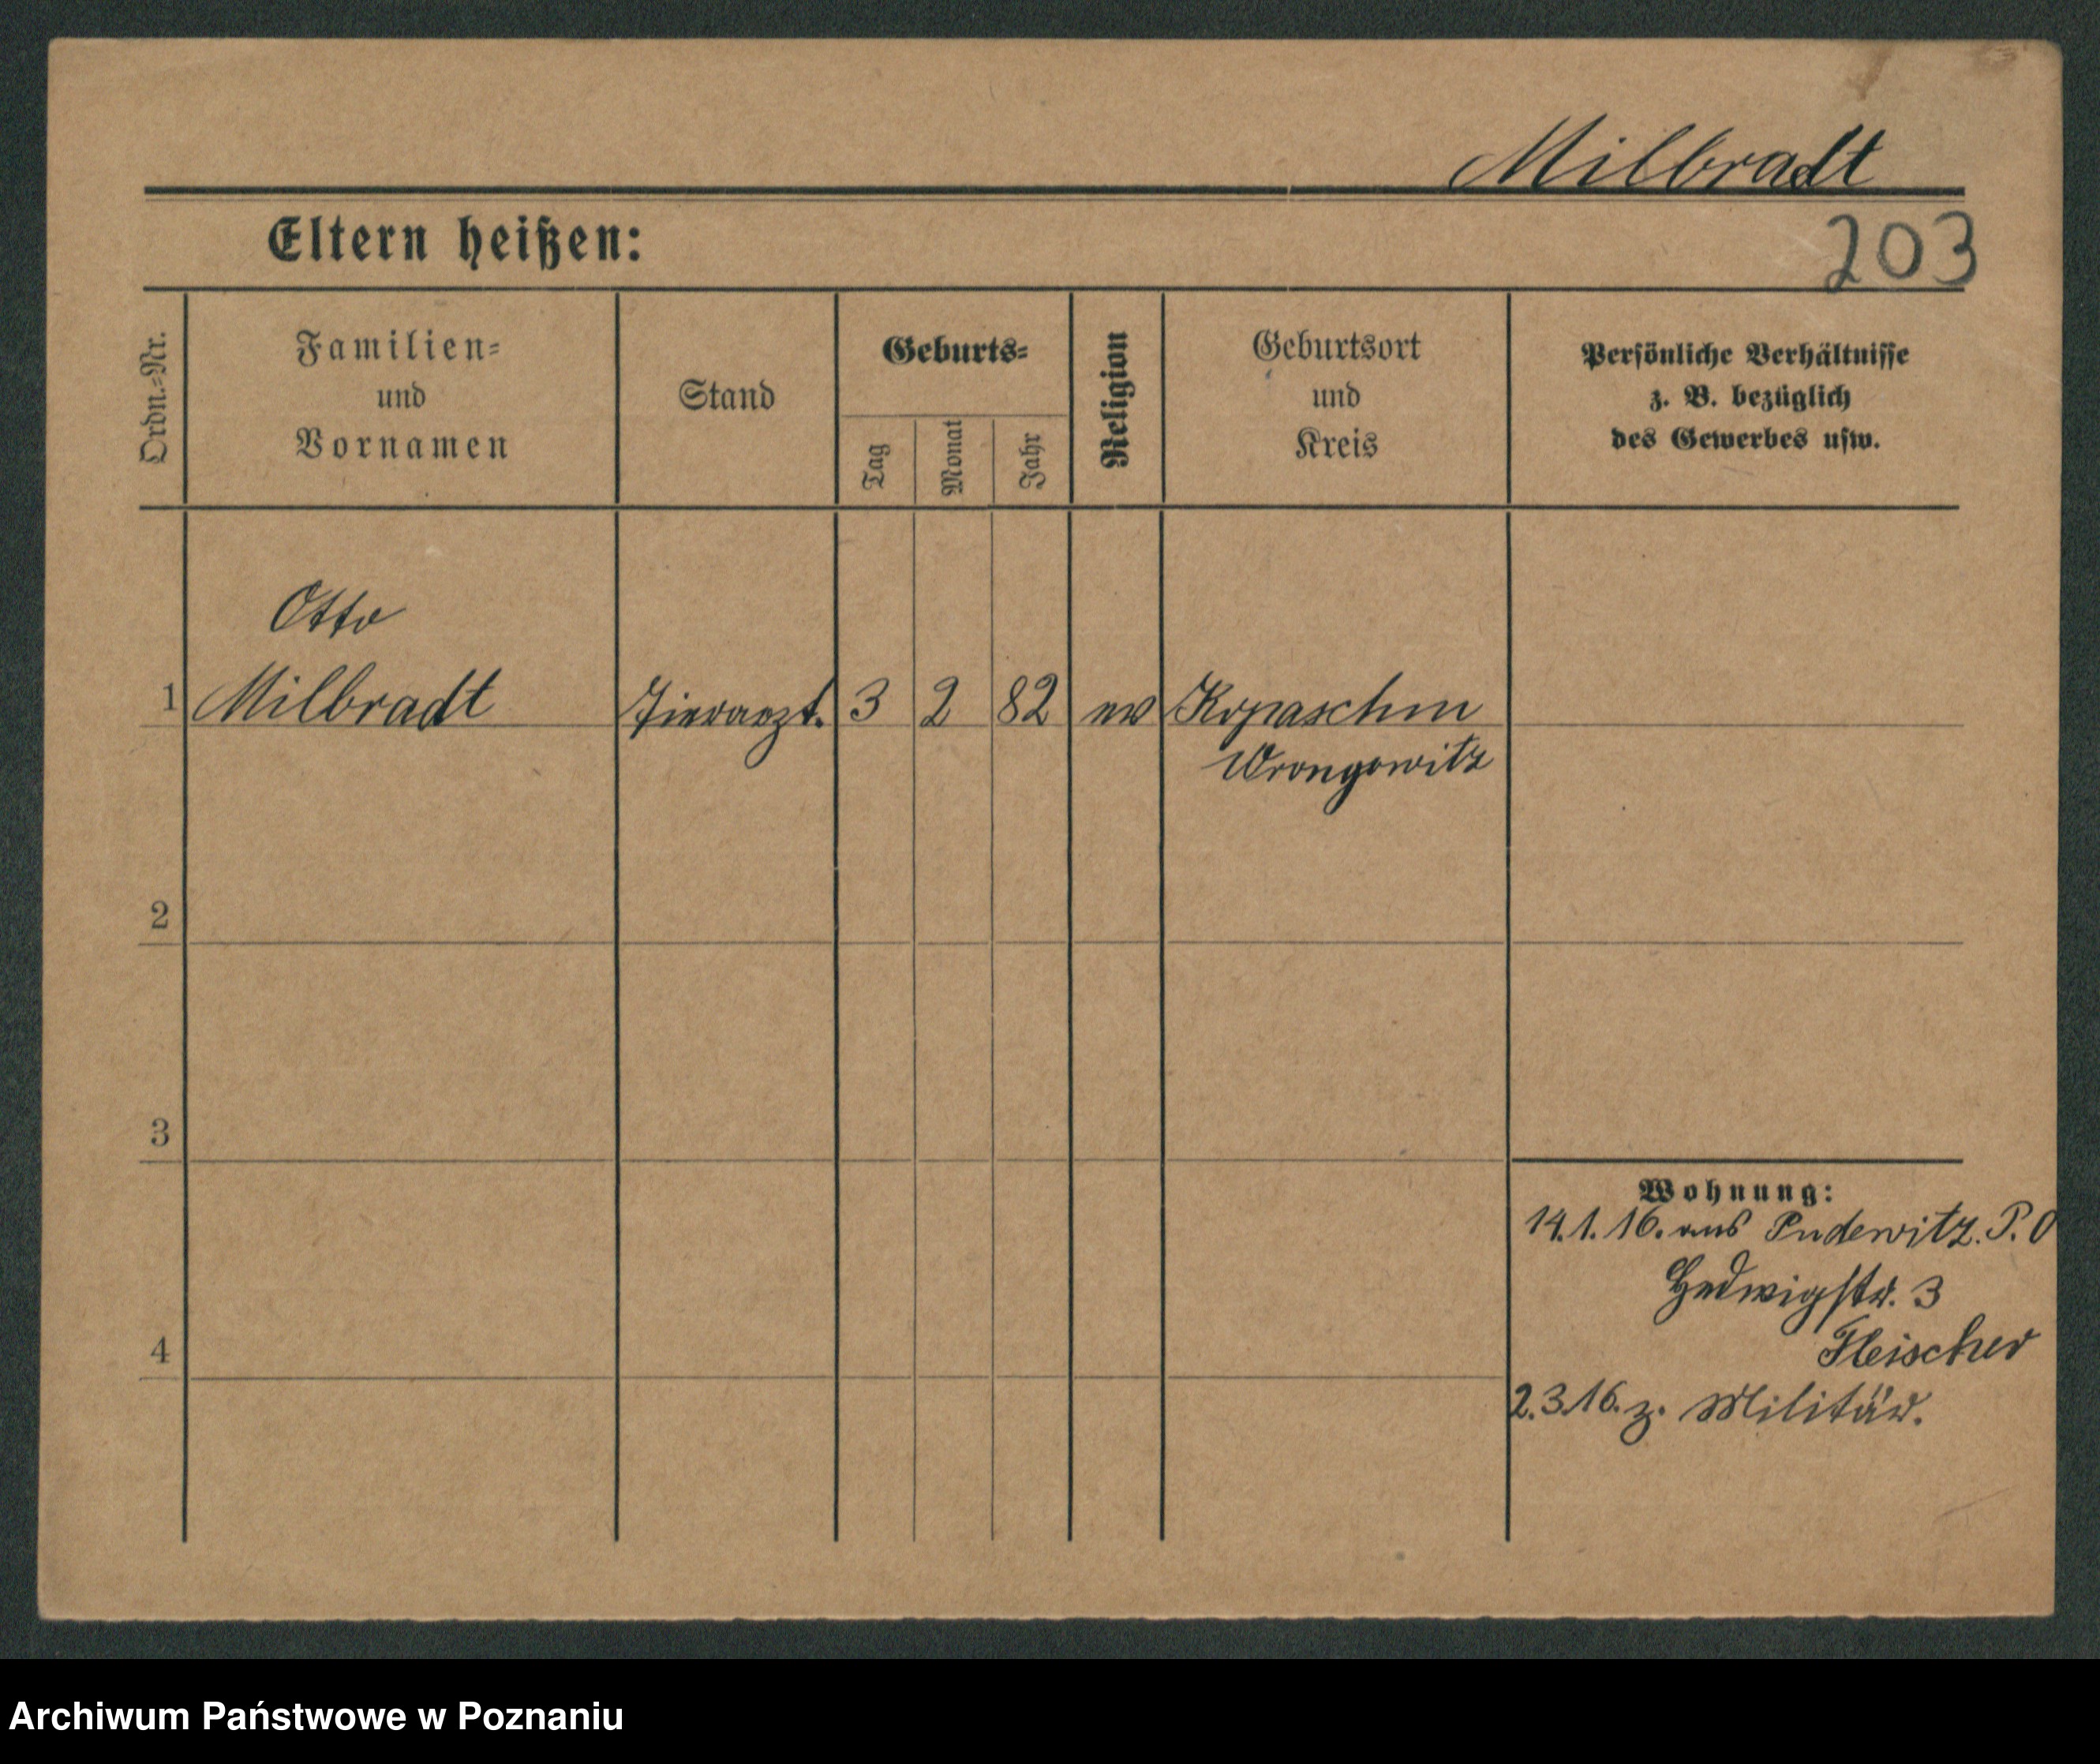 Milbradt
Eltern heißen:
203
Ordn.=Nr.
Familien=
und
Vornamen
Stand
Geburts=
Tag
Monat
Jahr
Religion
Geburtsort
und
Kreis
Persönliche Verhältnisse
z. B. bezüglich
des Gewerbes usw.
Otto
1 Milbradt Tierarzt. 3 2 82 ev Kopaschin
Wrongowitz
2
3
4
Wohnung:
14.1.16. aus Pudewitz. P. O
Hedwigstr. 3
Fleischer
2.3.16. z. Militär.
Archiwum Państwowe w Poznaniu